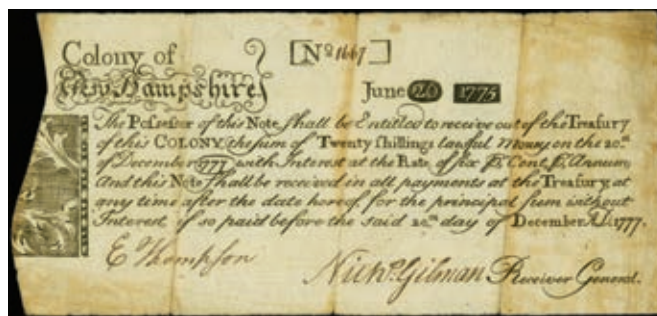 Colony of
New Hampshire
[No 1667]
June 20 1775
The Possessor of this Note Shall be Entitled to receive out of the Treasury
of this COLONY the sum of Twenty shillings lawful Money on the 20.th
of December 1777 with Interest at the Rate of six P. Cent P. Annum.
And this Note shall be received in all payments at the Treasury, at
any time after the date hereof, for the principal sum without
Interest, if so paid before the said 20.th day of December A.D. 1777.
E Thompson
Nicho. Gilman Receiver General.